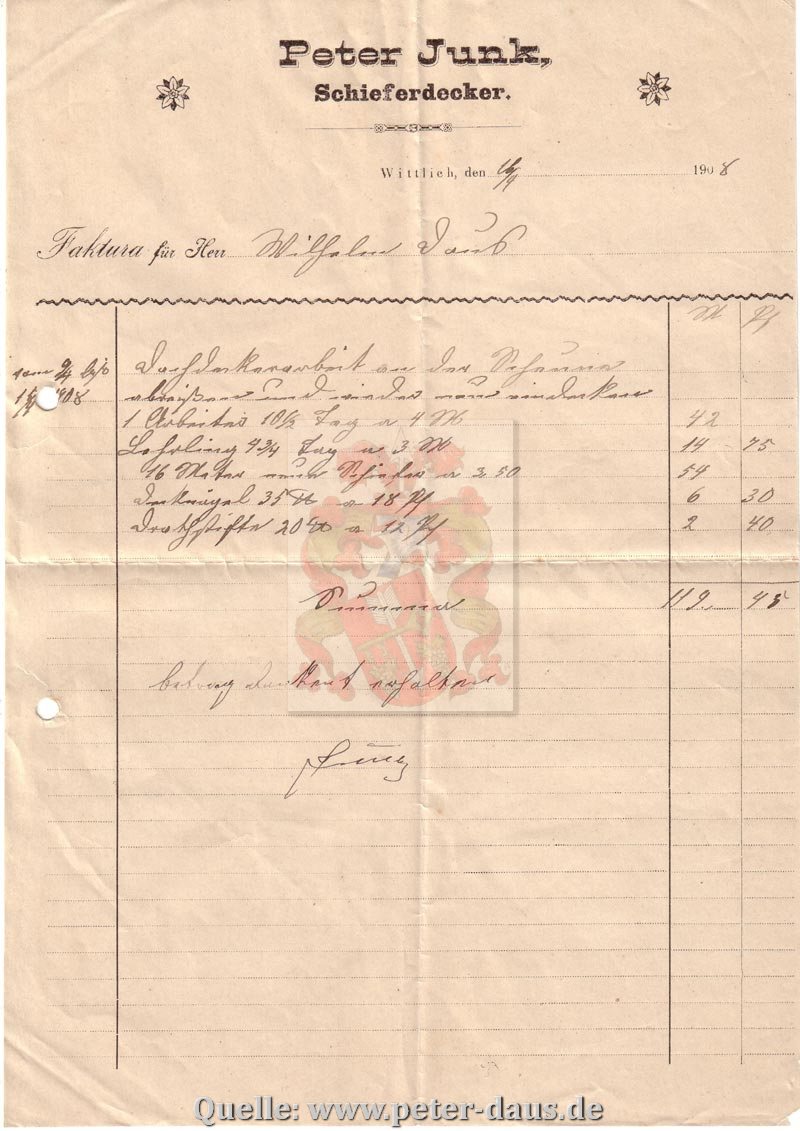 Peter Junk,
Schieferdecker.
Wittlich, den 16/4 1908
Faktura für Herr Wilhelm Daus
M Pf
vom 2/4 bis Dachdeckerarbeit an der Scheune
1908 abreißen und wieder neu eindecken
1 Arbeiter 10 1/2 Tag a 4 M 42
Lehrling 4 3/4 Tag a 3 M 14 75
16 Meter neue Schiefer a 3,50 54
Decknägel 35 a 18 Pf 6 30
Drathstifte 20 a 12 Pf 2 40
Summa 119 45
betrag dankent erhalten
Junk
Quelle: www.peter-daus.de